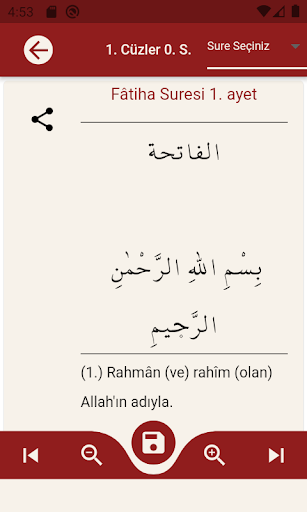 4:53
1. Cüzler 0. S.
Sure Seçiniz
Fâtiha Suresi 1. ayet
الفاتحة
بِسْمِ اللهِ الرَّحْمٰنِ
الرَّحٖيمِ
(1.) Rahmân (ve) rahîm (olan)
Allah'ın adıyla.